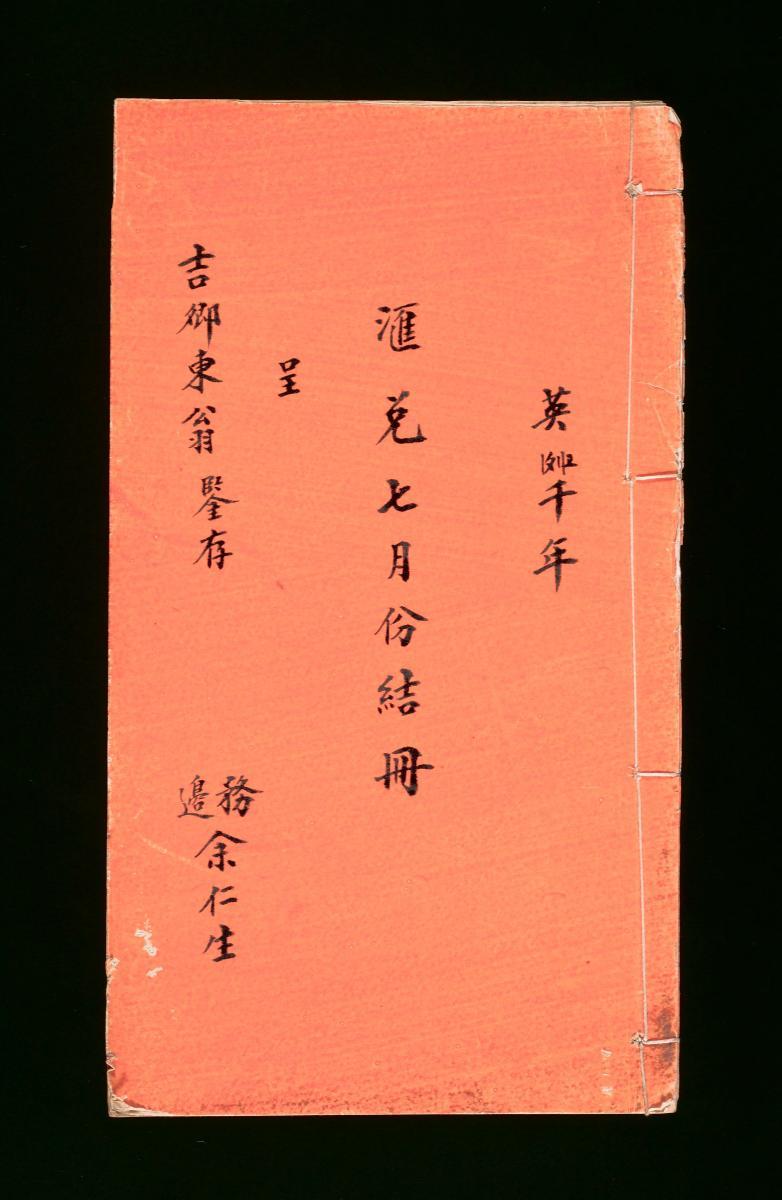 英 千年
滙兌七月份結冊
呈
吉卿東翁鑒存
務邊余仁生